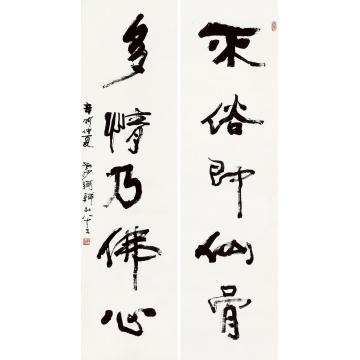 不俗即仙骨
多情乃佛心